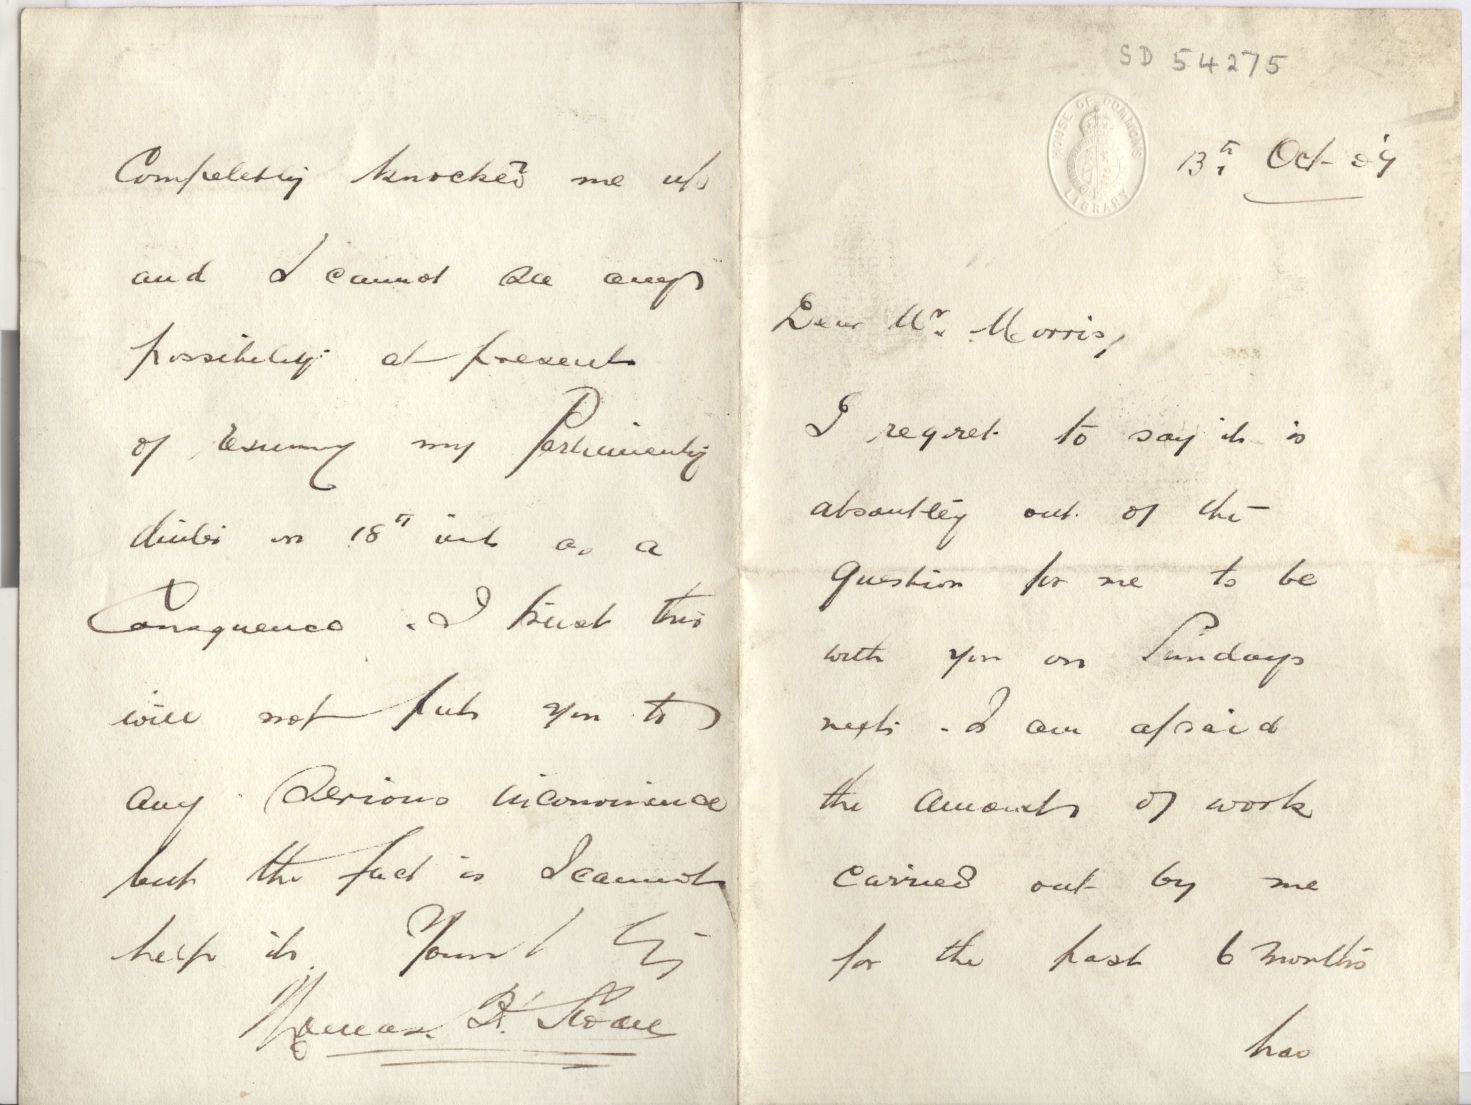 SD 54275
HOUSE OF COMMONS
LIBRARY
13th Oct 27
Dear Mr. Morris,
I regret to say it is
absoutley out of the
question for me to be
with you on Sundays
next. I am afraid
the amount of work
carried out by me
for the past 6 months
has
Completely knocked me up
and I cannot see any
possibility at present
of resuming my Parlimenty
duties on 18th inst as a
Consequence. I trust this
will not put you to
any serious inconvinence
but the fact is I cannot
help it. Yours